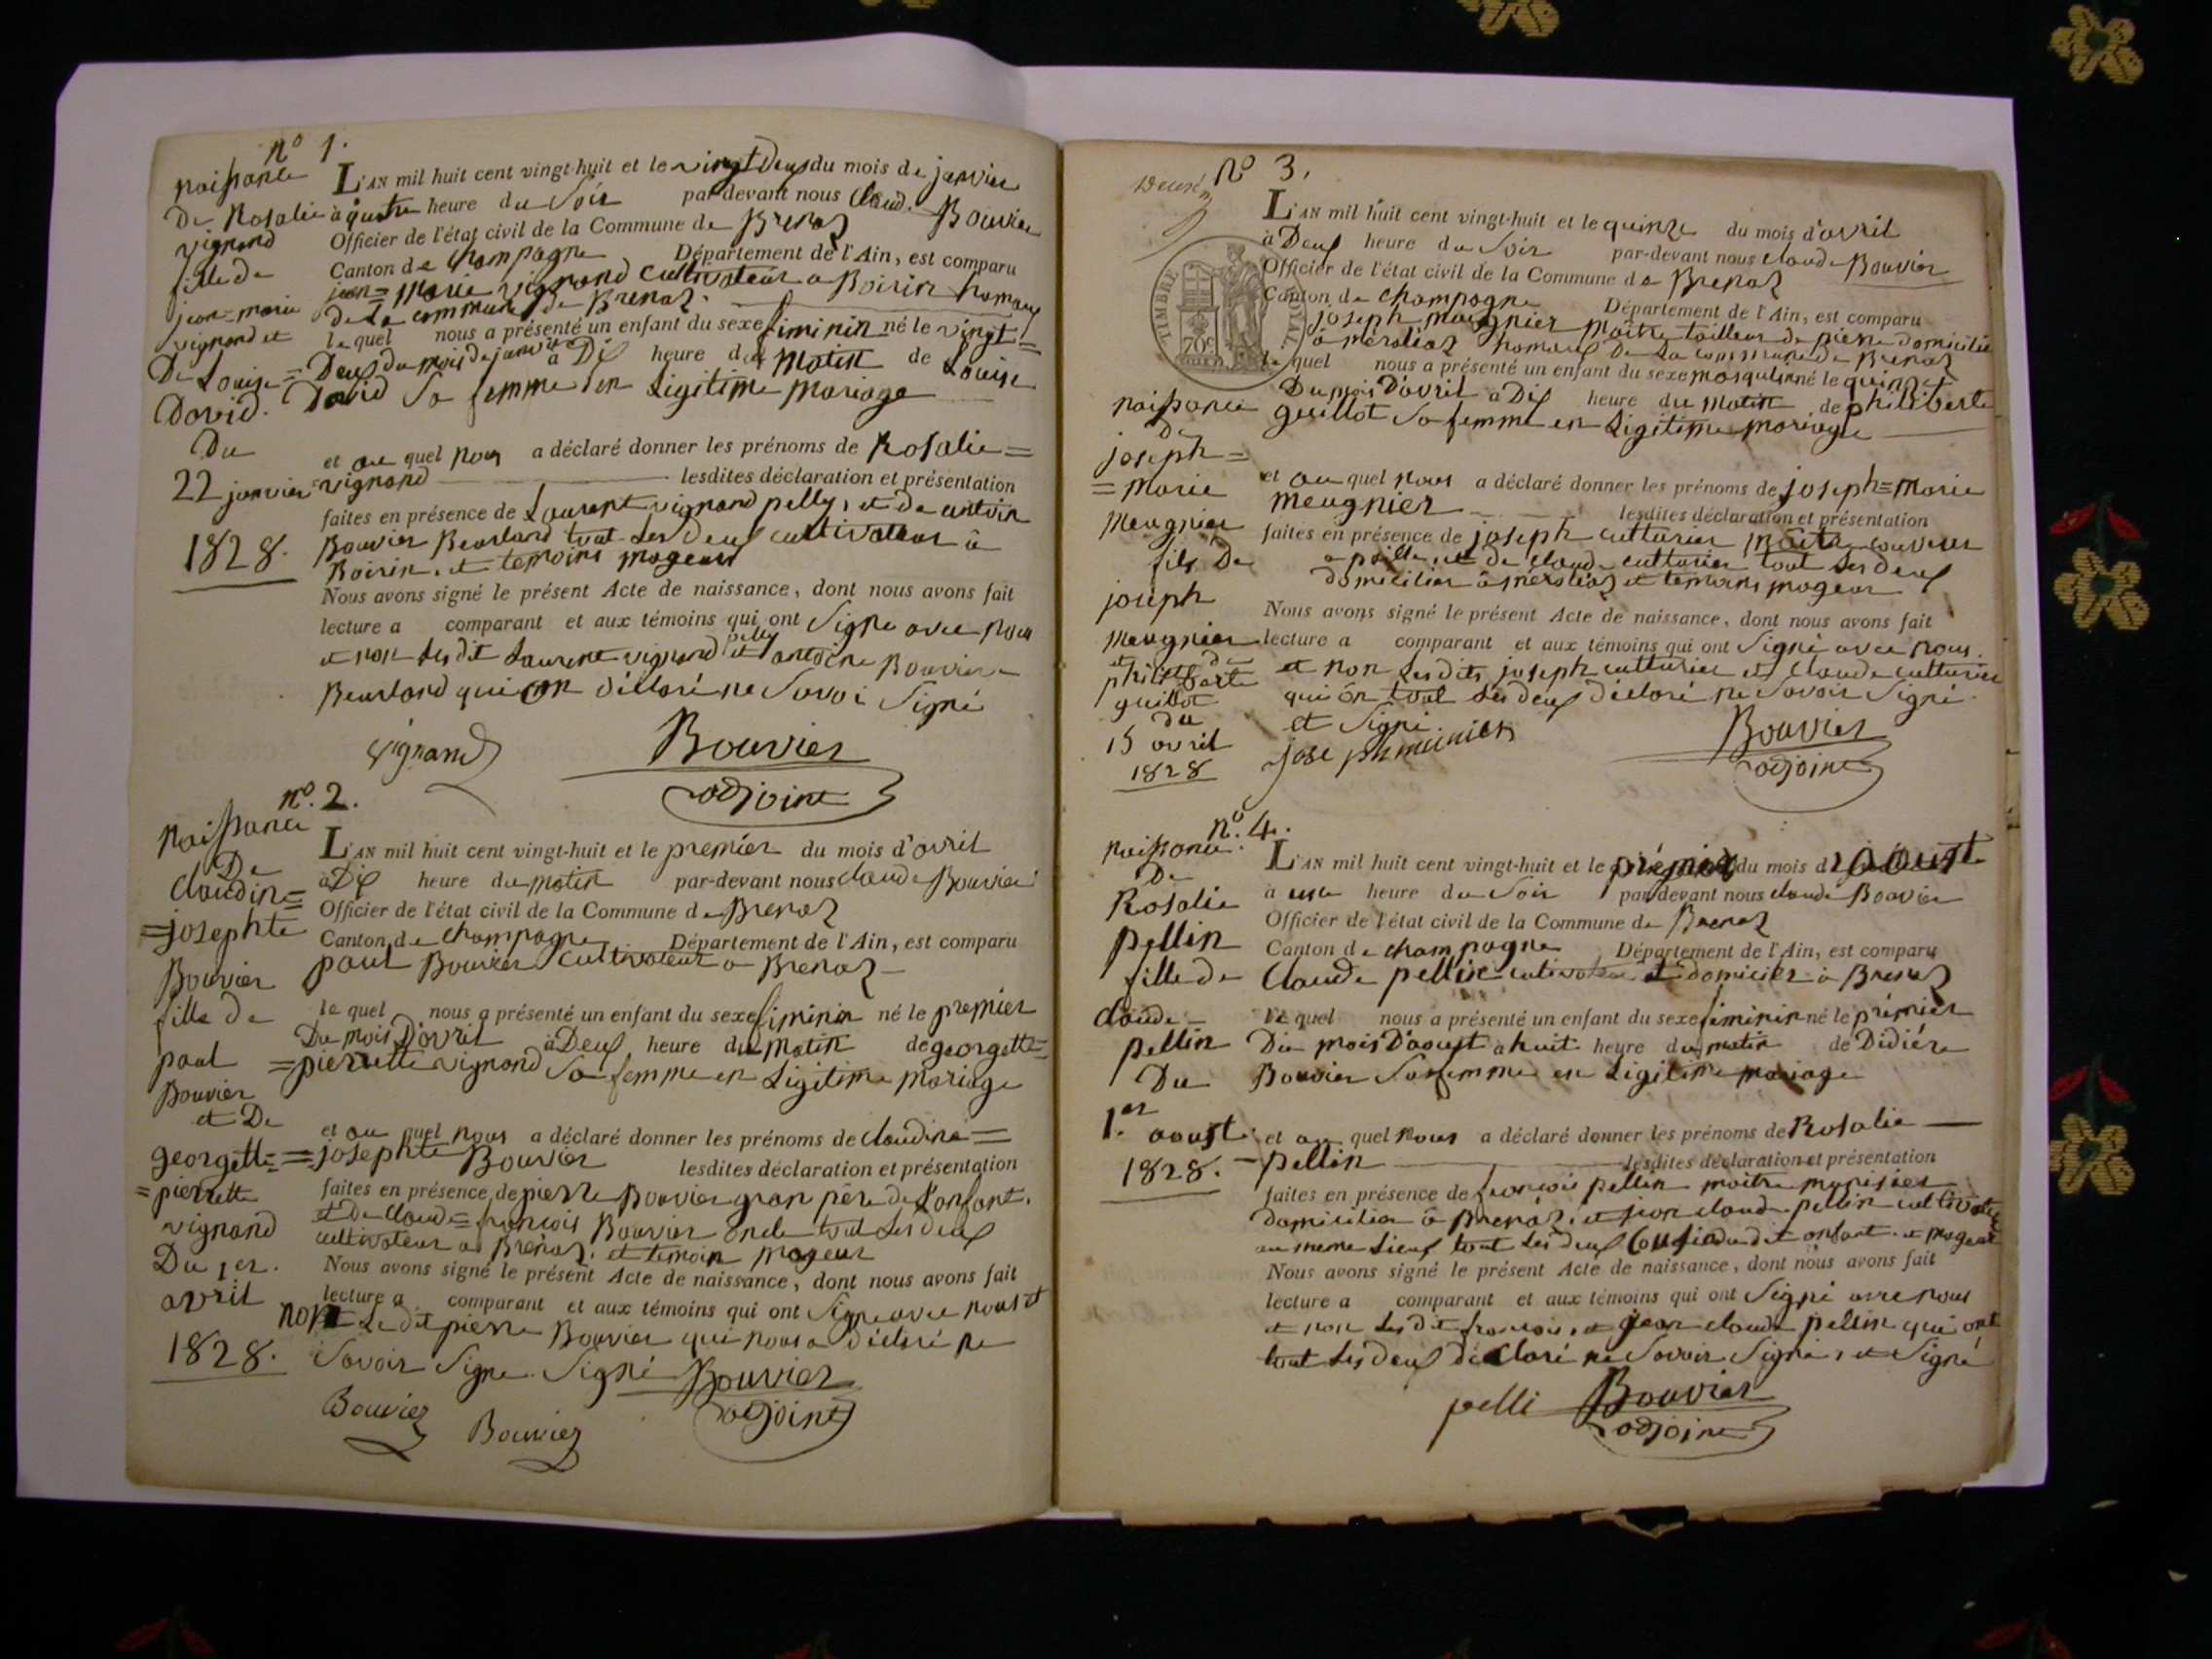 nº 1.
naissance
De Rosalie
vignand
fille de
jean=marie
vignand et
De Louise=
David.
Du
22 janvier
1828.
L'AN mil huit cent vingt-huit et le vingt Deux du mois de janvier
à quatre heure du Soir par-devant nous Claude Bouvier
Officier de l'état civil de la Commune de Brenaz
Canton de Champagne Département de l'Ain, est comparu
jean=marie vignand cultivateur a Boirin hamaux
De La commune De Brenaz.
le quel nous a présenté un enfant du sexe fiminin né le vingt=
=Deux du mois de janvier à Dix heure du Matin de Louise
David Sa femme en Ligitime mariage
et au quel nous a déclaré donner les prénoms de Rosalie=
=vignand lesdites déclaration et présentation
faites en présence de Laurent vignand pelly, et de antoine
Bouvier Beurland tout Les Deux cultivateur à
Boirin. et temoins mageur
Nous avons signé le présent Acte de naissance, dont nous avons fait
lecture a comparant et aux témoins qui ont Signe avec nous
et non Les dit Laurent vignand pelly et antoine Bouvier
Beurland qui on déclaré ne Savoi Signé
vignand Bouvier
adjoint
nº. 2.
naissance
De
claudine=
=josephte
Bouvier
fille De
paul
Bouvier
et De
georgette=
=pierrette
vignand
Du 1er.
avril
1828.
L'AN mil huit cent vingt-huit et le premier du mois d'avril
à Dix heure du matin par-devant nous claude Bouvier
Officier de l'état civil de la Commune de Brenaz
Canton de champagne Département de l'Ain, est comparu
paul Bouvier cultivateur a Brenaz
le quel nous a présenté un enfant du sexe fiminin né le premier
Du mois D'avril à Deux heure du matin de georgette=
=pierrette vignand Sa femme en Ligitime mariage
et au quel nous a déclaré donner les prénoms de claudine=
=josephte Bouvier lesdites déclaration et présentation
faites en présence de pierre Bouvier gran père de L'anfant.
et De claude=francois Bouvier oncle tout Les deux
cultivateur a Brenaz. et temoin mageur
Nous avons signé le présent Acte de naissance, dont nous avons fait
lecture a comparant et aux témoins qui ont Signe avec nous et
non Le dit pierre Bouvier qui nous a déclaré ne
Savoir Signe. Signé Bouvier
adjoint
Bouvier Bouvier
nº 3.
TIMBRE ROYAL.
70c
naissance
de
joseph=
=marie
Meugnier
fils De
joseph
Meugnier
et de
philiberte
guillot
du
15 avril
1828
L'AN mil huit cent vingt-huit et le quinze du mois d'avril
à Deux heure du Soir par-devant nous claude Bouvier
Officier de l'état civil de la Commune de Brenaz
Canton de champagne Département de l'Ain, est comparu
joseph meugnier maitre tailleur de pierre domicilié
à méraléaz hamaux De La commune de Brenaz
le quel nous a présenté un enfant du sexe masqulin né le quinze
Du mois D'avril à Dix heure du matin de philiberte
guillot Sa femme en Ligitime mariage
et au quel nous a déclaré donner les prénoms de joseph=marie
meugnier lesdites déclaration et présentation
faites en présence de joseph cutturier maitre couvreur
a paille, et De claude cutturier tout Les deux
domicilier à méraléaz et temoins mageur
Nous avons signé le présent Acte de naissance, dont nous avons fait
lecture a comparant et aux témoins qui ont Signé avec nous.
et non Les dits joseph cutturier et claude cutturier
qui on tout Les deux déclaré ne Savoir Signé.
et Signé Bouvier
joseph meunier adjoint
nº. 4.
naissance.
De
Rosalie
pellin
fille de
claude
pellin
Du
1.er aoust
1828.
L'AN mil huit cent vingt-huit et le prémier du mois d'aoust
à une heure du Soir par-devant nous claude Bouvier
Officier de l'état civil de la Commune de Brenaz
Canton de champagne Département de l'Ain, est comparu
claude pellin cultivateur et domicilier à Brenaz
le quel nous a présenté un enfant du sexe fiminin né le prémier
Du mois D'aoust à huit heure du matin de Didiére
Bouvier Sa femme en Ligitime mariage
et au quel nous a déclaré donner les prénoms de Rosalie
pellin lesdites déclaration et présentation
faites en présence de francois pellin maitre
domicilier à Brenaz. et jean claude pellin cultivateur
au meme Lieux tout Les deux Cousin du dit anfant. et mageur
Nous avons signé le présent Acte de naissance, dont nous avons fait
lecture a comparant et aux témoins qui ont Signé avec nous
et non Les dit francois, et jean claude pellin qui ont
tout Les deux déclaré ne Savoir Signé, et Signé
pelli Bouvier
adjoint